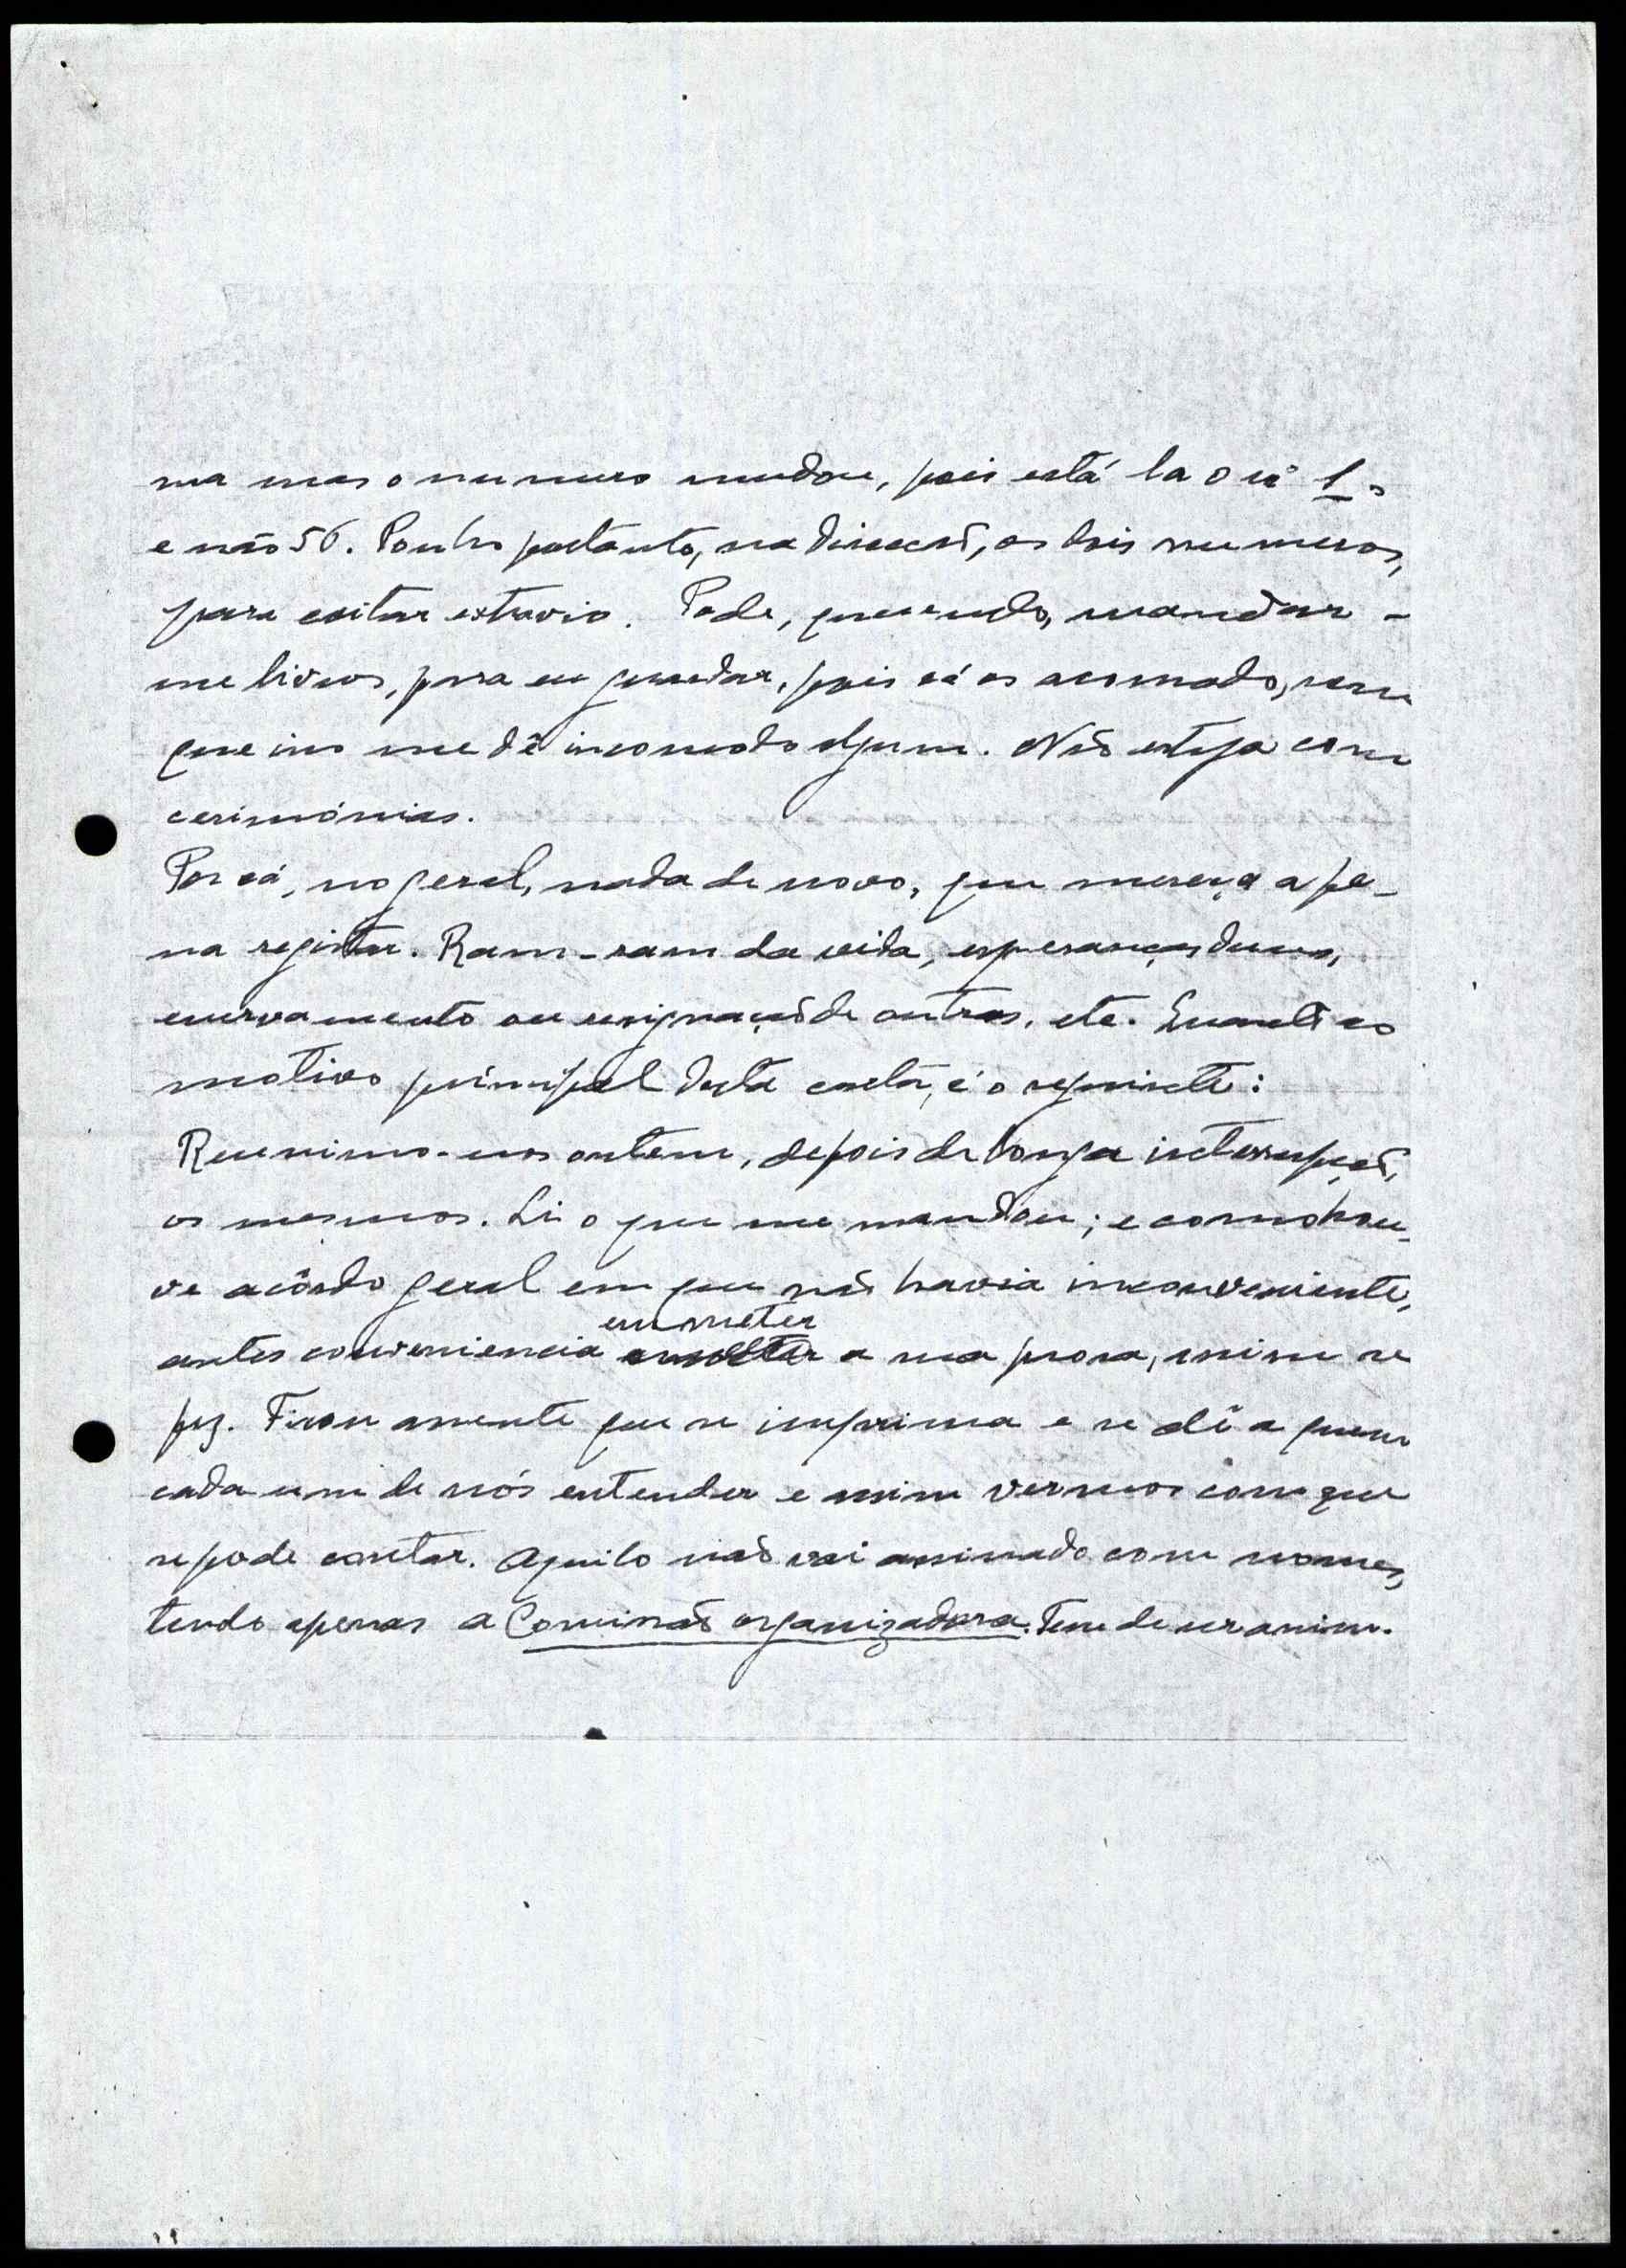 ma mas o numero mudou, pois está la o nº 1,
e não 56. Ponho portanto, na direcção, os dois numeros,
para evitar extravio. Pode, querendo, mandar-
me livros, para eu guardar, pois cá os acomodo, sem
que isso me dê incomodo algum. Não esteja com
cerimónias.
Por cá, no geral, nada de novo, que mereça a pe-
na registar. Ram-ram da vida, esperanças duns,
enervamento ou resignação de outros, etc. Quanto ao
motivo principal desta carta, é o seguinte:
Reunimo-nos ontem, depois de longa interrupção,
os mesmos. Li o que me mandou; e como hou-
ve acôrdo geral em que não havia inconveniente,
antes conveniencia em meter a sua prosa, assim se
fez. Ficou assente que se imprima e se dê a quem
cada um de nós entender e assim vermos com que
se pode contar. Aquilo não vai assinado com nomes,
tendo apenas a Comissão organizadora. Tem de ser assim.